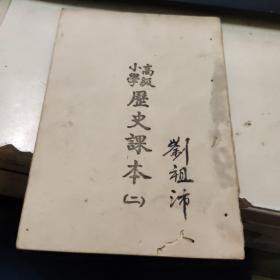 高級
小學
歷史課本(二)
劉祖沛